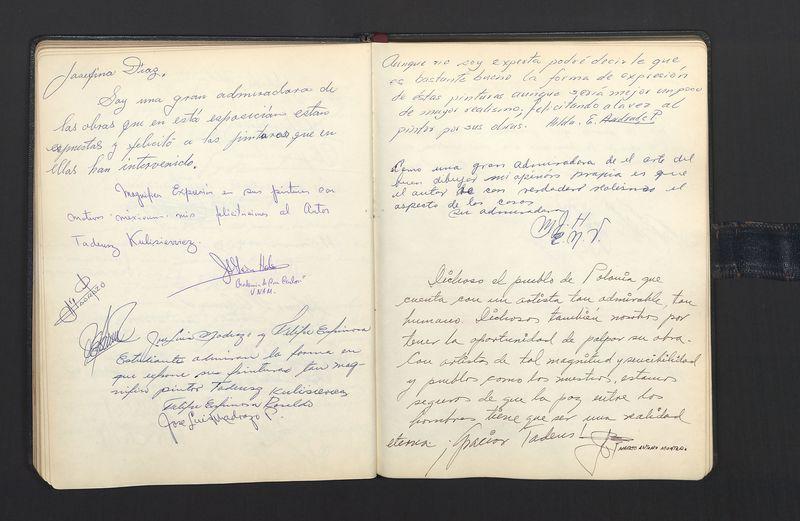 Josefina Díaz.
Soy una gran admiradora de
las obras que en está exposición estan
expuestas y felicitó a las pintoras que en
ellas han intervenido.
Magnifica Exposición en sus pinturas con
motivos mexicanos mis felicitaciones al Autor
Tadeusz Kulisievvez.
Academia de San Carlos"
U.N.A.M.
José Luis Madrazo y Felipe Espinosa
Estudiante admiran la forma en
que expone sus pinturas tan mag-
nifico pintor Tadeusz Kulisievvez
Felipe Espinosa Rosaldo
José Luis Madrazo P.
Aunque no soy experta podré decirle que
es bastante buena la forma de expresión
de éstas pinturas aunque sería mejor un poco
de mayor realismo, felicitando a la vez al
pintor por sus obras. Alda. E. Andrade P.
Como una gran Admiradora de el arte del
buen dibujar mi opinión propia es que
el autor ve con verdadero realismo el
aspecto de las cosas
su admiradora
M. J. H.
E.N.V.
Dichoso el pueblo de Polonia que
cuenta con un artista tan admirable, tan
humano. Dichosos también nosotros por
tener la oportunidad de palpar su obra.
Con artistas de tal magnitud y sencibilidad
y pueblos como los nuestros, estamos
seguros de que la paz entre los
hombres tiene que ser una realidad
eterna. ¡Gracias Tadeus!
MARCO ANTONIO MONTERO.